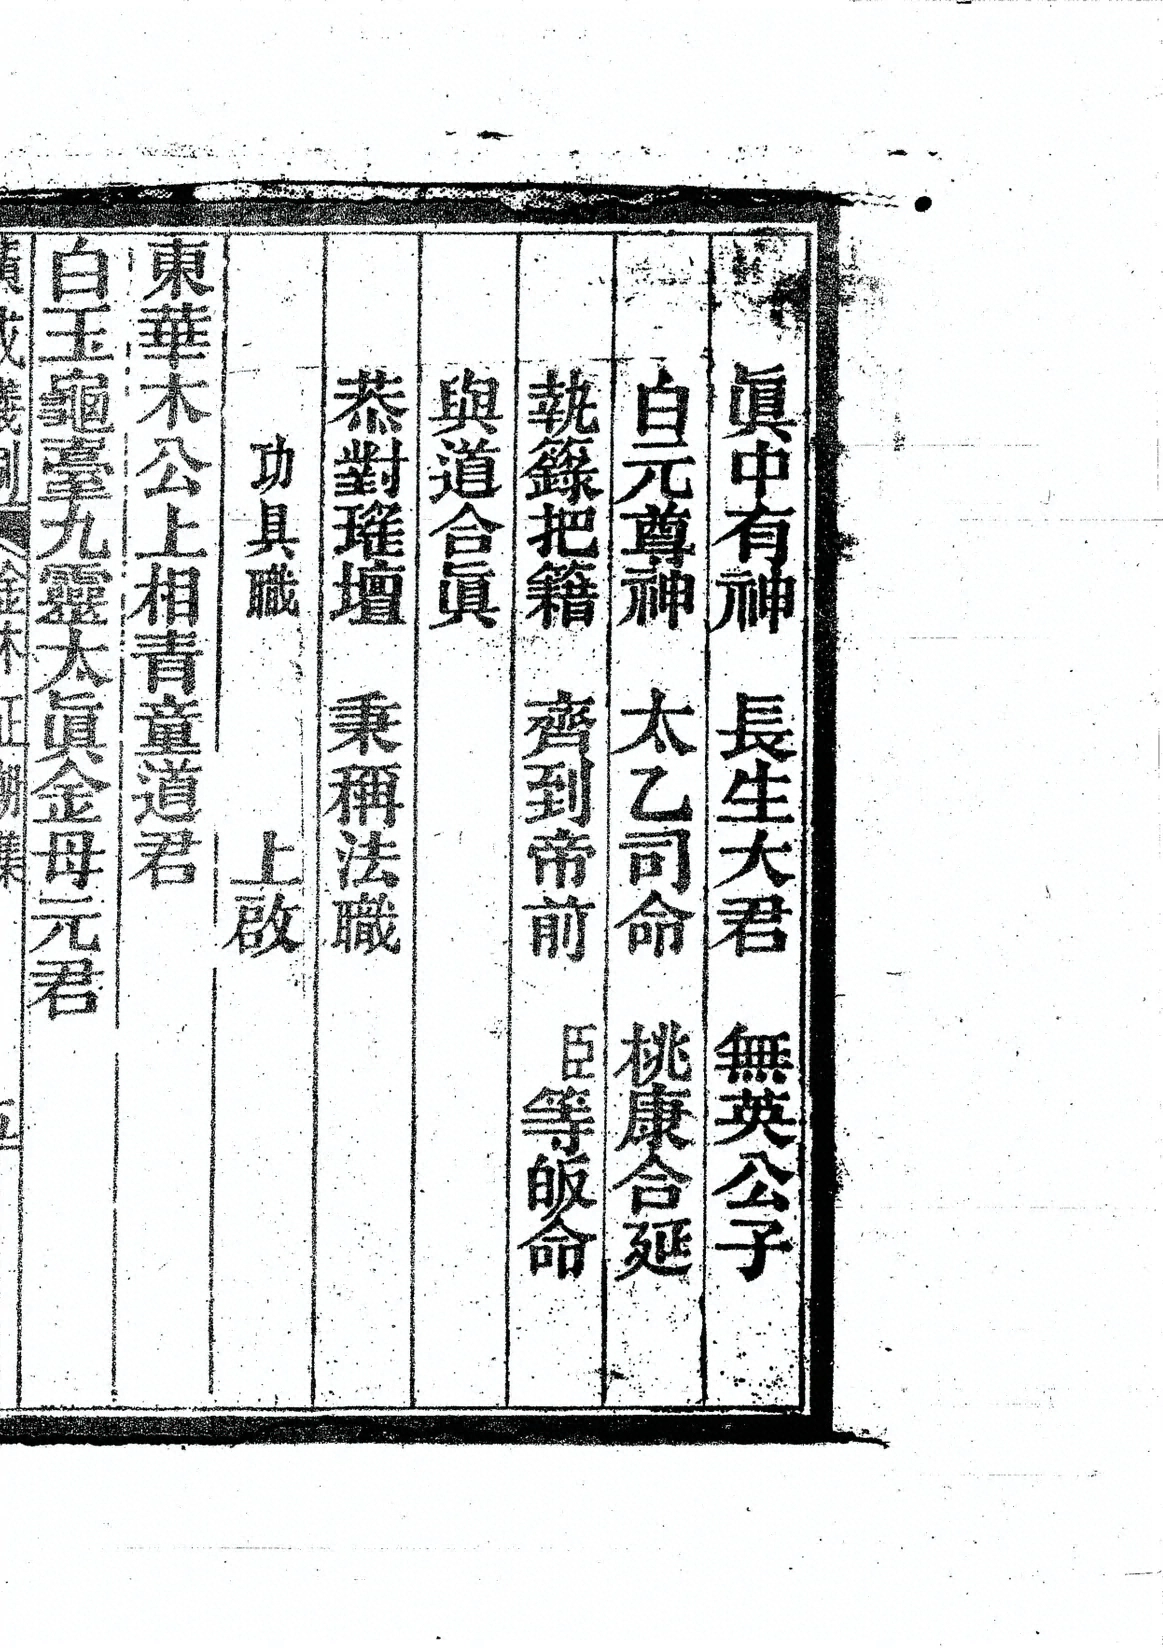 眞中有神　長生大君　無英公子
白元尊神　太乙司命　桃康合延
執籙把籍　齊到帝前　臣等皈命
與道合眞
恭對瑤壇　秉稱法職
功具職　上啟
東華木公上相青童道君
白玉龜臺九靈太眞金母元君